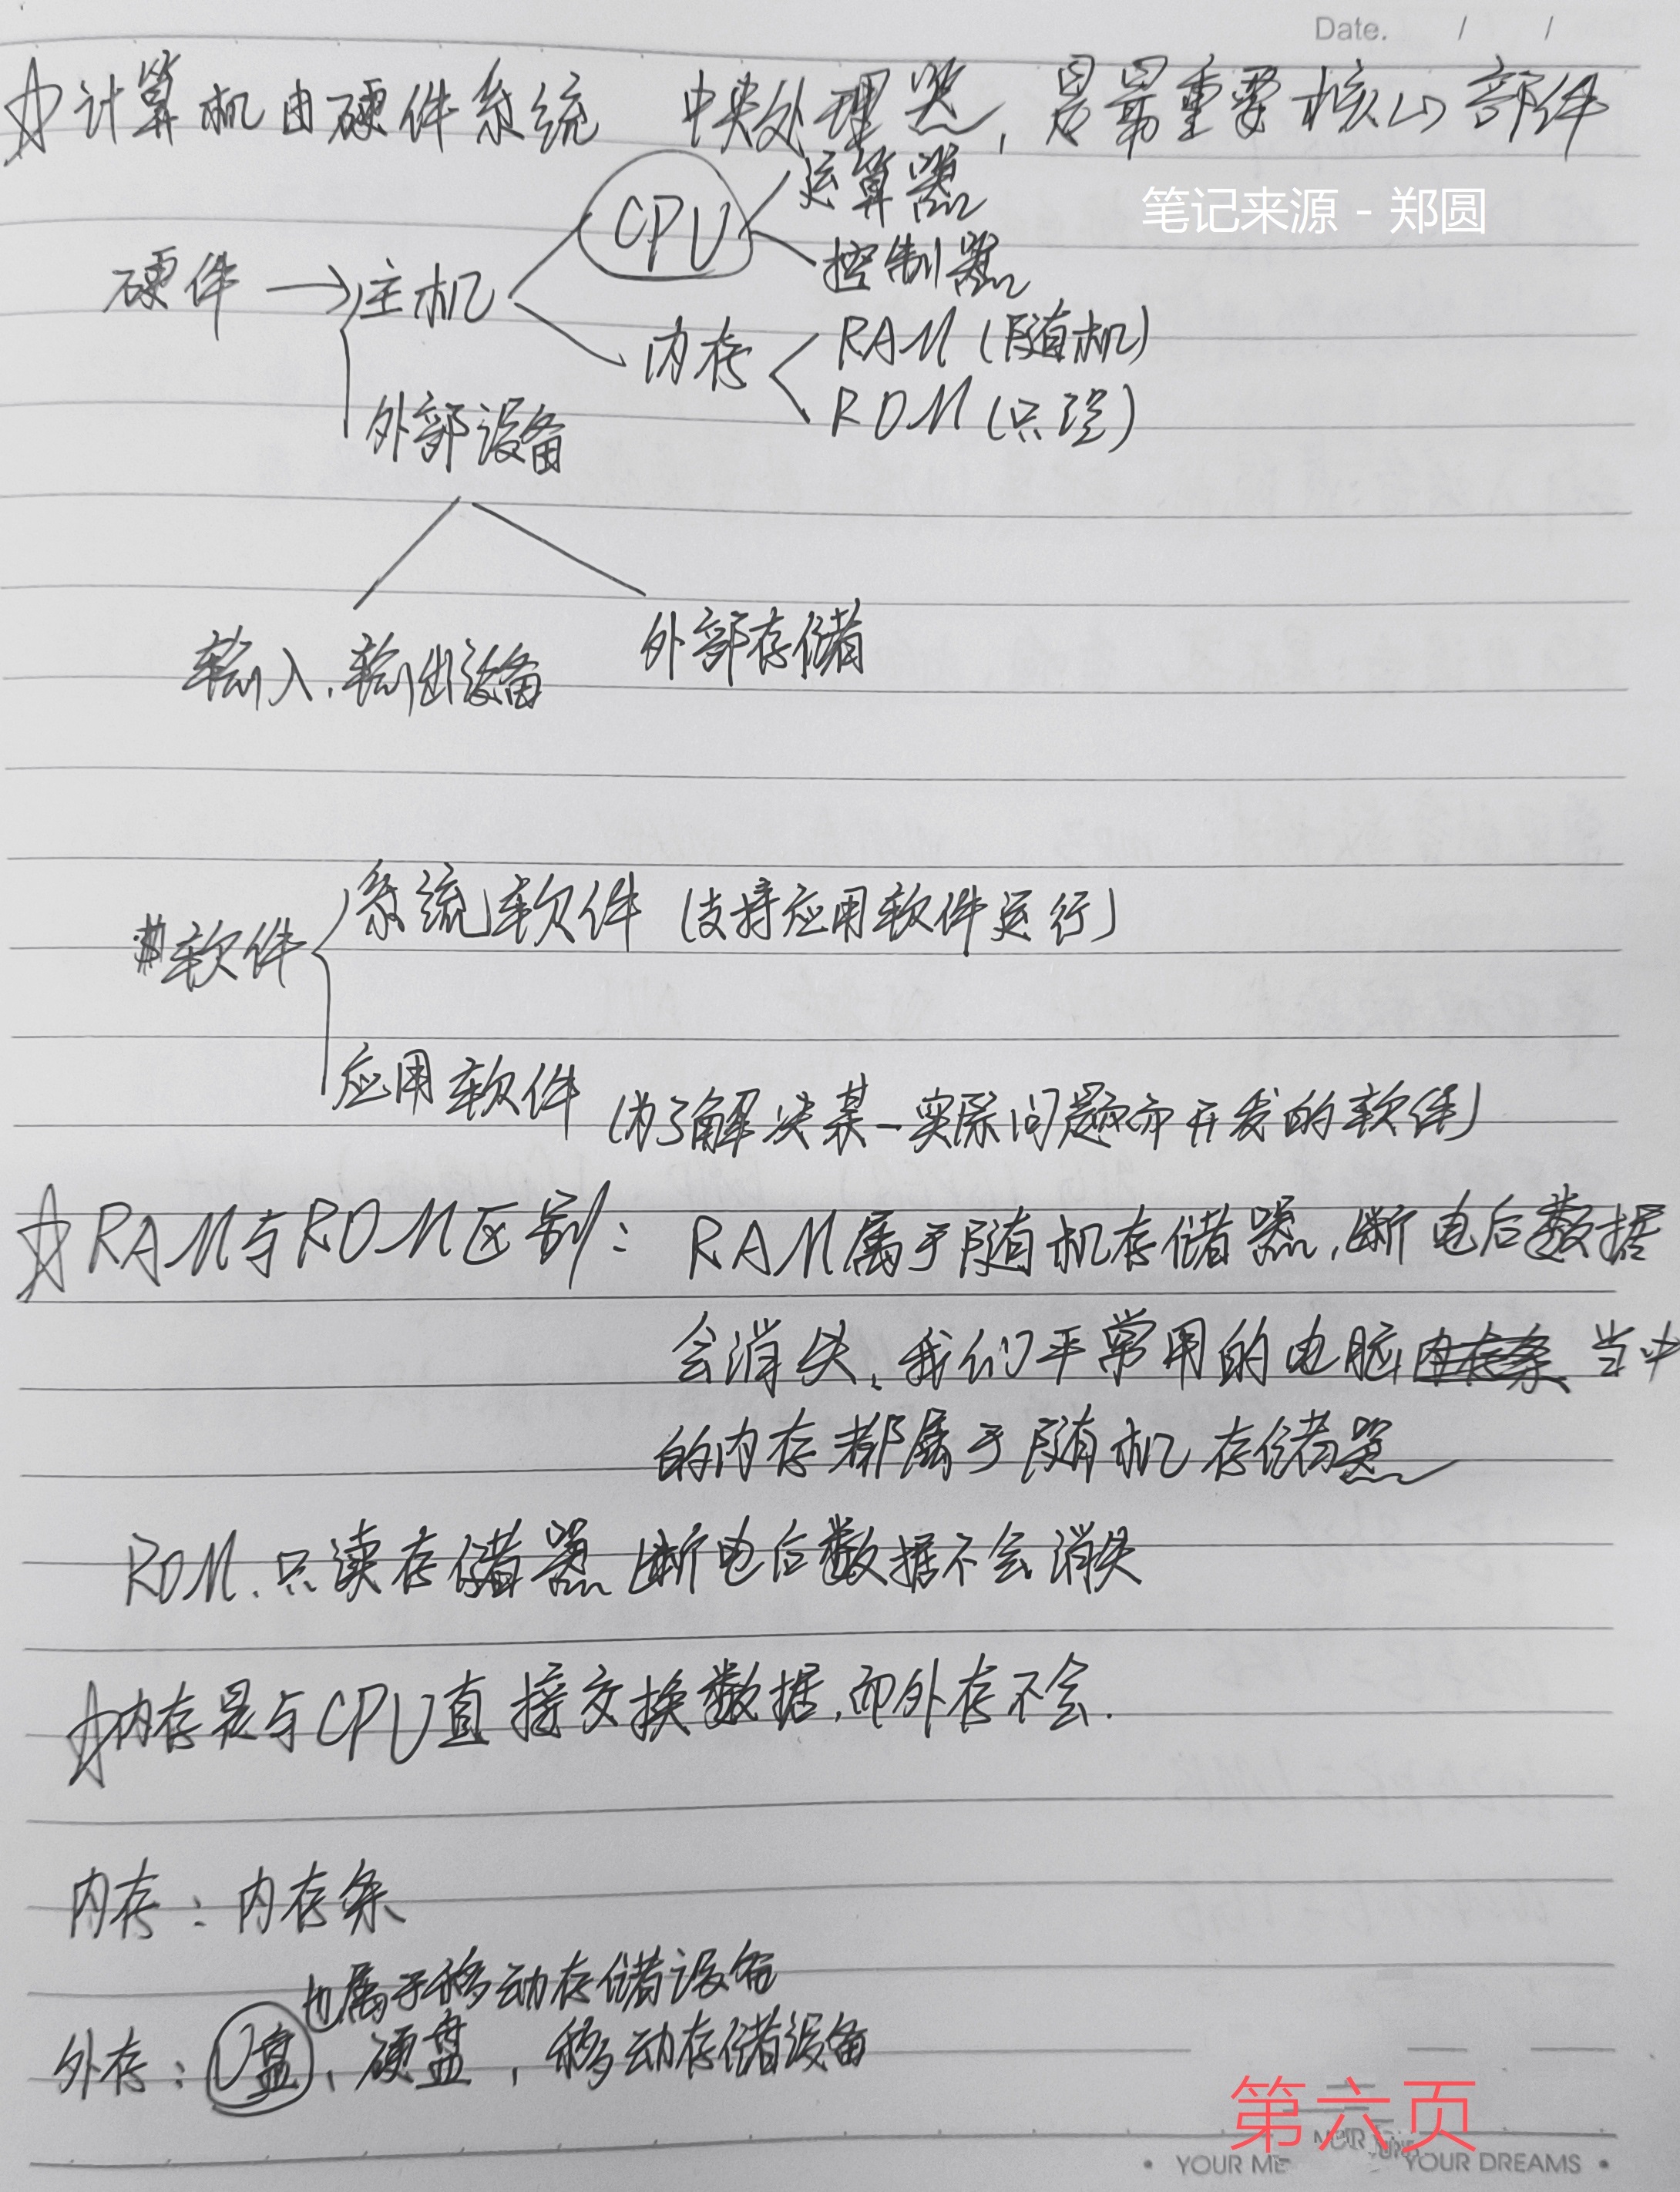 Date. / /
☆计算机由硬件系统 中央处理器，是最重要核心部件
运算器
笔记来源 - 郑圆
CPU
控制器
硬件 → 主机
RAM (随机)
内存
ROM (只读)
外部设备
外部存储
输入、输出设备
系统软件 (支持应用软件运行)
软件
应用软件 (为了解决某一实际问题而开发的软件)
☆RAM与ROM区别： RAM属于随机存储器，断电后数据
会消失、我们平常用的电脑当中
的内存都属于随机存储器
ROM、只读存储器 断电后数据不会消失
☆内存是与CPU直接交换数据，而外存不会.
内存：内存条
也属于移动存储设备
外存：U盘、硬盘，移动存储设备
第六页
• YOUR ME YOUR DREAMS •